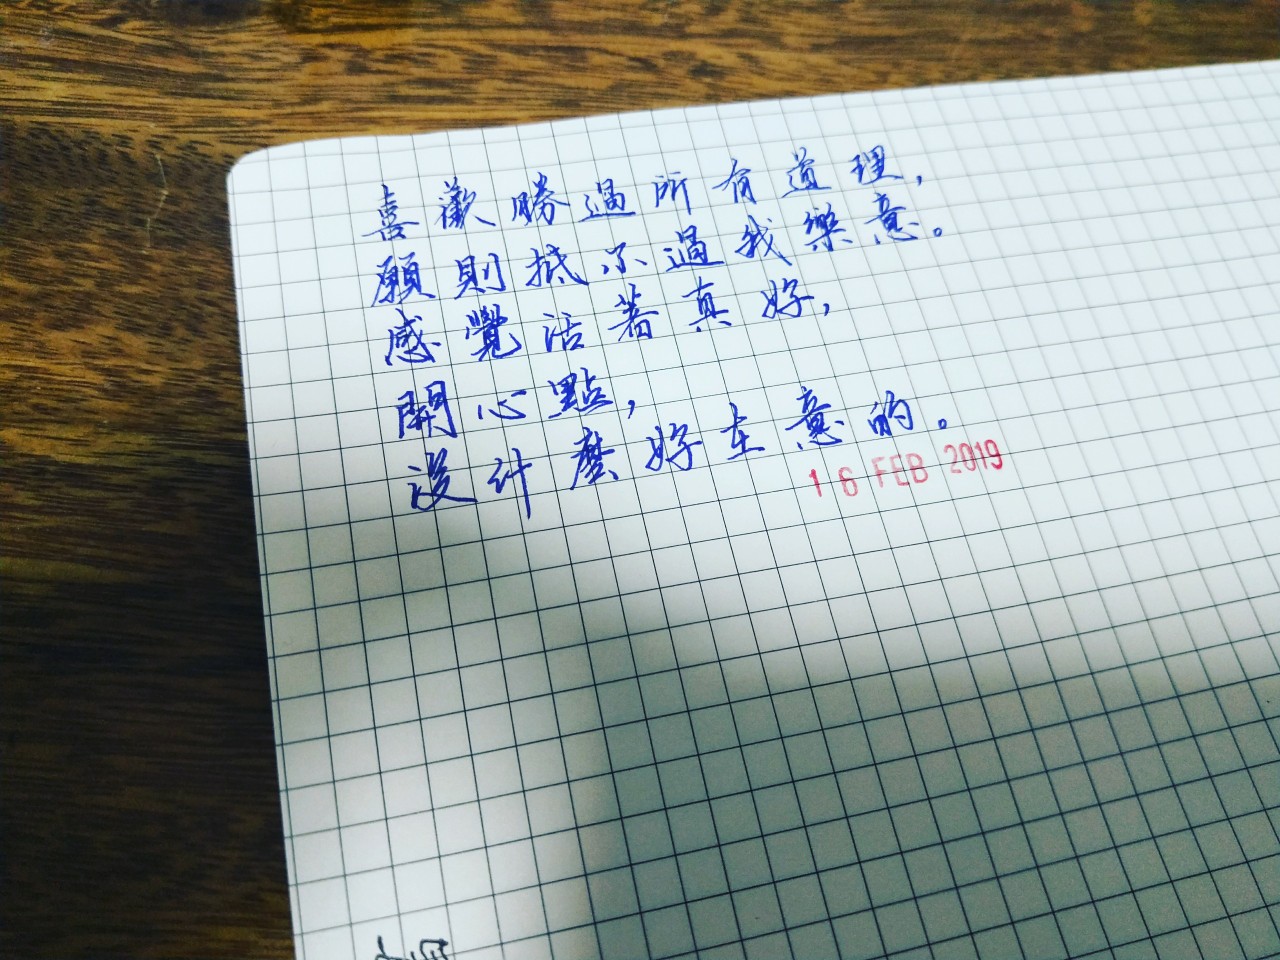 喜歡勝過所有道理，
願則抵不過我樂意。
感覺活著真好，
開心點，
沒什麼好在意的。
16 FEB 2019